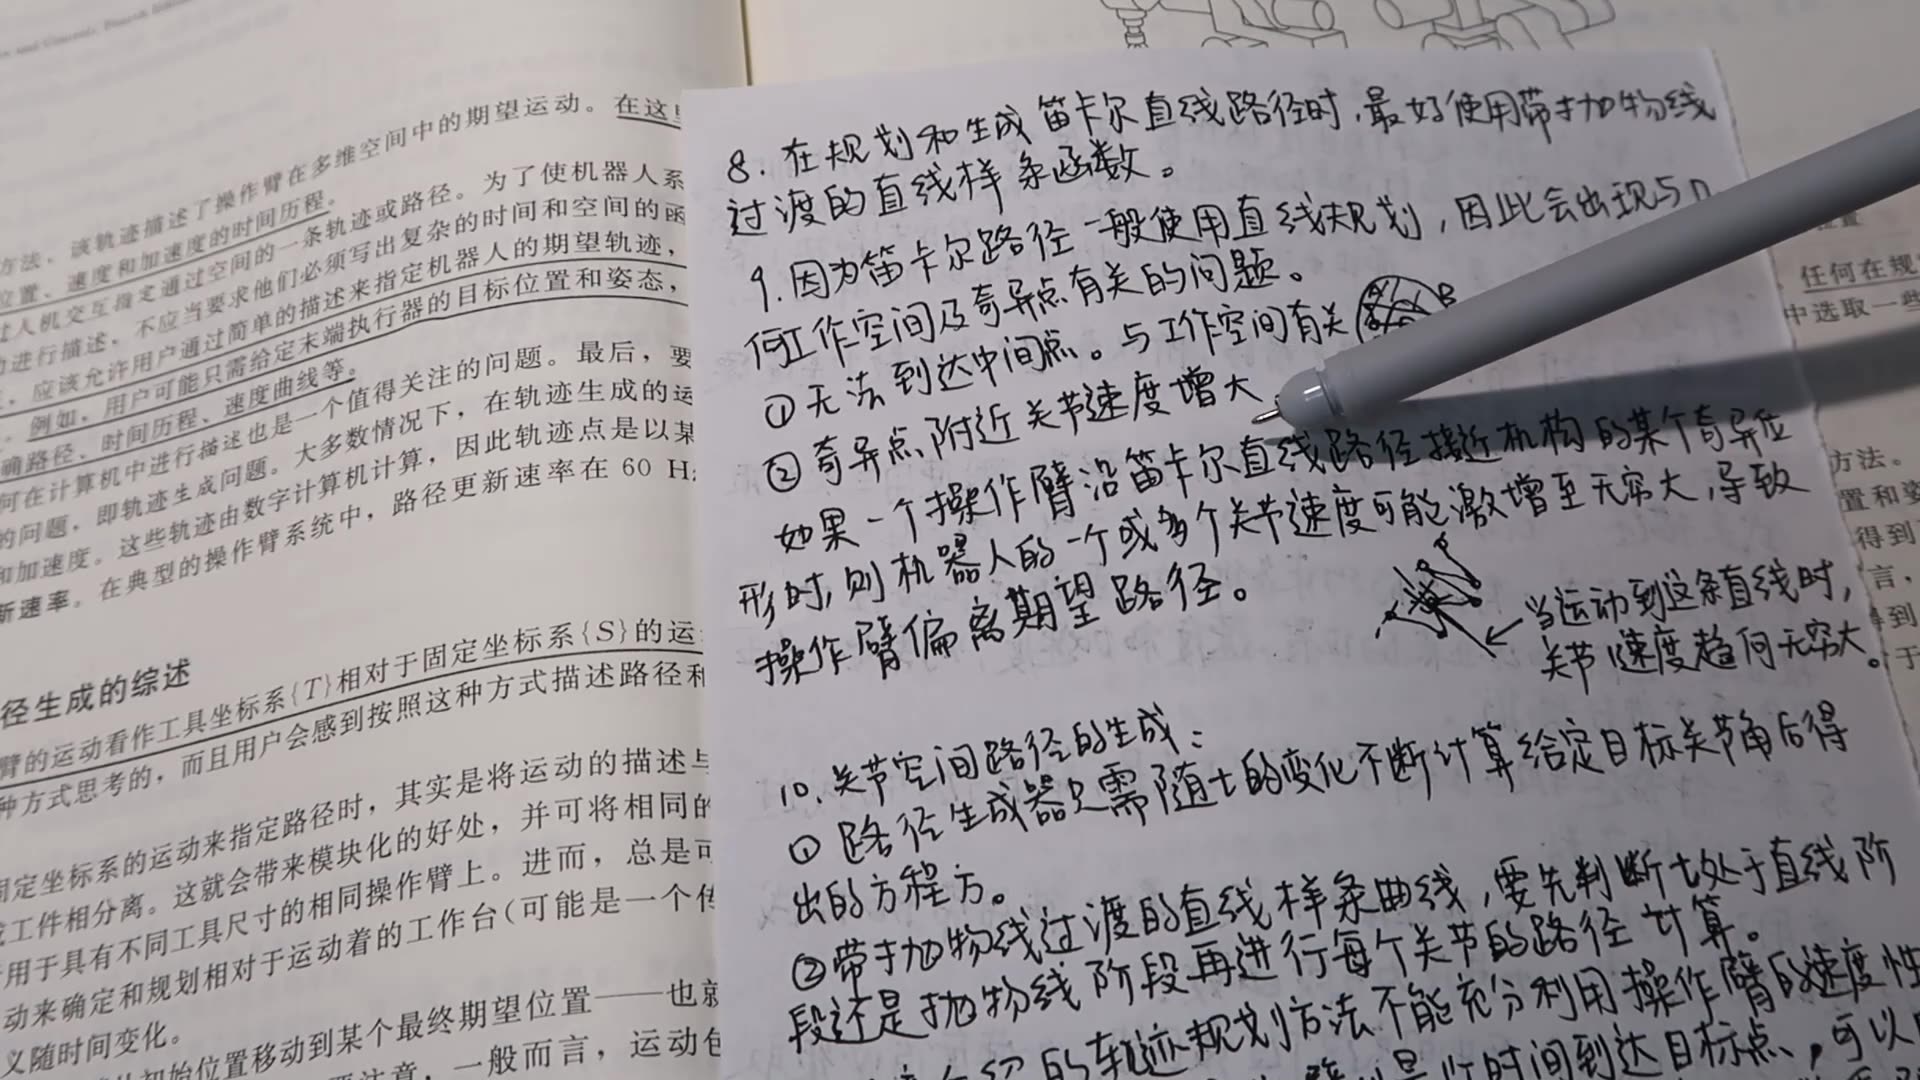 在多维空间中的期望运动。在这
方法，该轨迹描述了操作臂
位置、速度和加速度的时间历程。
人机交互指定通过空间的一条轨迹或路径。为了使机器人系
进行描述，不应当要求他们必须写出复杂的时间和空间的函
应该允许用户通过简单的描述来指定机器人的期望轨迹，
例如，用户可能只需给定末端执行器的目标位置和姿态，
确路径、时间历程、速度曲线等。
何在计算机中进行描述也是一个值得关注的问题。最后，要
的问题，即轨迹生成问题。大多数情况下，在轨迹生成的运
和加速度。这些轨迹由数字计算机计算，因此轨迹点是以某
新速率。在典型的操作臂系统中，路径更新速率在 60 H
径生成的综述
臂的运动看作工具坐标系{T}相对于固定坐标系{S}的运
种方式思考的，而且用户会感到按照这种方式描述路径和
固定坐标系的运动来指定路径时，其实是将运动的描述与
工件相分离。这就会带来模块化的好处，并可将相同的
用于具有不同工具尺寸的相同操作臂上。进而，总是可
动来确定和规划相对于运动着的工作台(可能是一个传
义随时间变化。
初始位置移动到某个最终期望位置——也就
注意，一般而言，运动包
8. 在规划和生成笛卡尔直线路径时，最好使用带抛物线
过渡的直线样条函数。
9. 因为笛卡尔路径一般使用直线规划，因此会出现与
何工作空间及奇异点有关的问题。
①无法到达中间点。与工作空间有关
A B
②奇异点附近关节速度增大
如果一个操作臂沿笛卡尔直线路径接近机构的某个奇异位
形时，则机器人的一个或多个关节速度可能激增至无穷大，导致
操作臂偏离期望路径。
当运动到这条直线时，
关节速度趋何无穷大。
10. 关节空间路径的生成：
① 路径生成器只需随t的变化不断计算给定目标关节角后得
出的方程方。
②带抛物线过渡的直线样条曲线，要先判断t处于直线阶
段还是抛物线阶段再进行每个关节的路径计算。
的轨迹规划方法不能充分利用操作臂的速度性
时间到达目标点，可以
任何在规
中选取一些
方法。
置和姿
得到
言，
得到
于